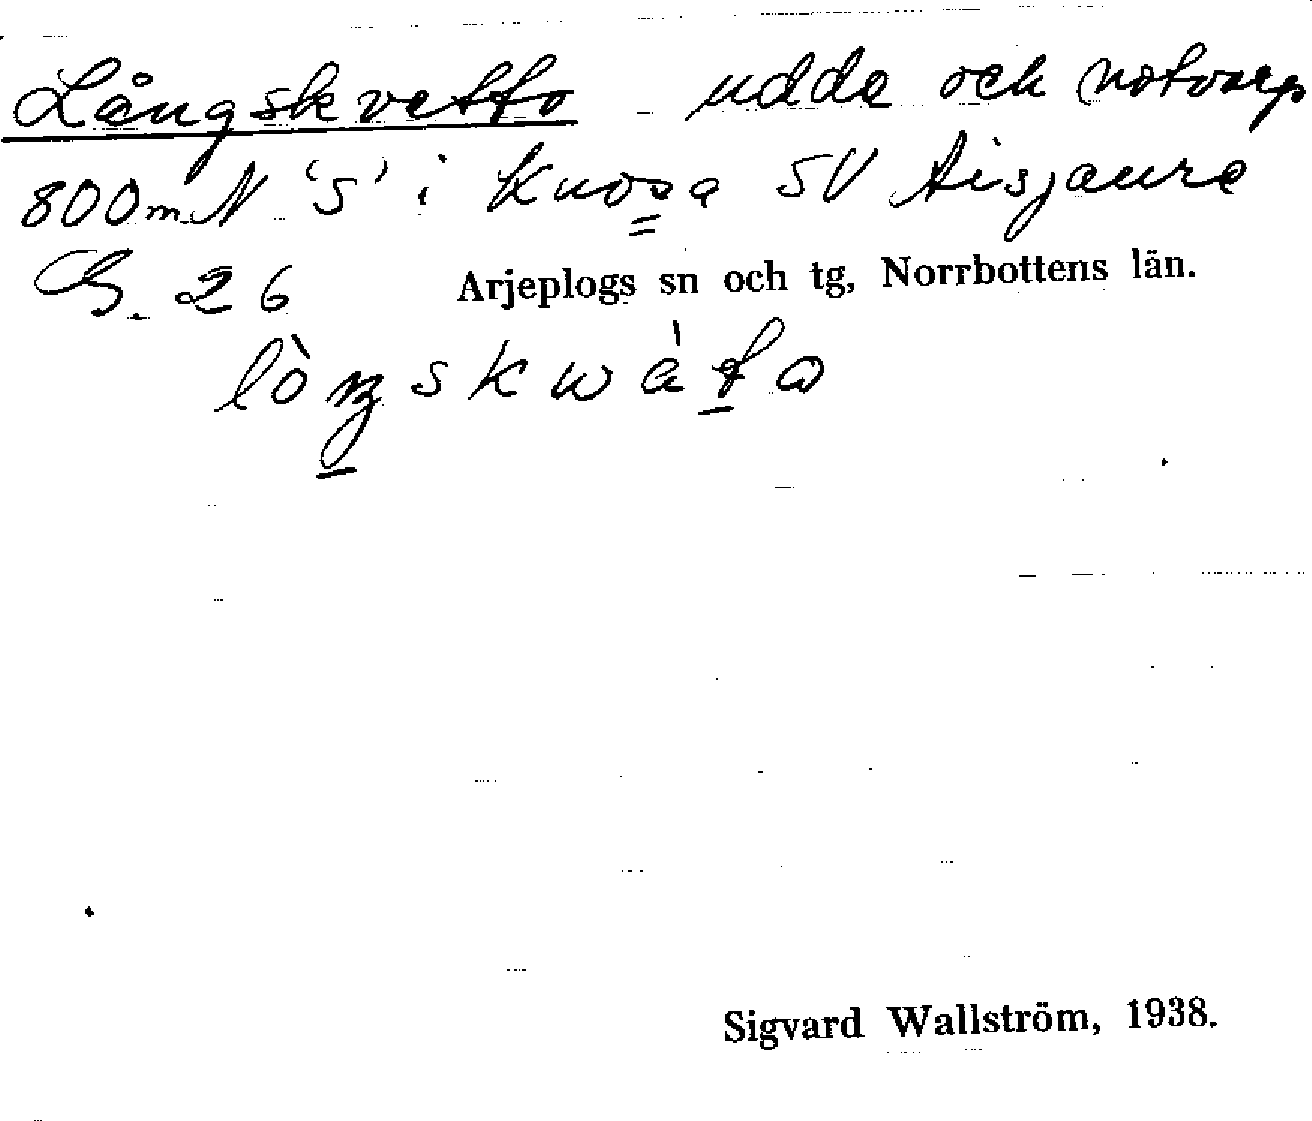 Långskvetto - udde och notvarp
800 m N 'S' i Knosa SV Aisjaure
G. 26 Arjeplogs sn och tg, Norrbottens län.
Sigvard Wallström, 1938.